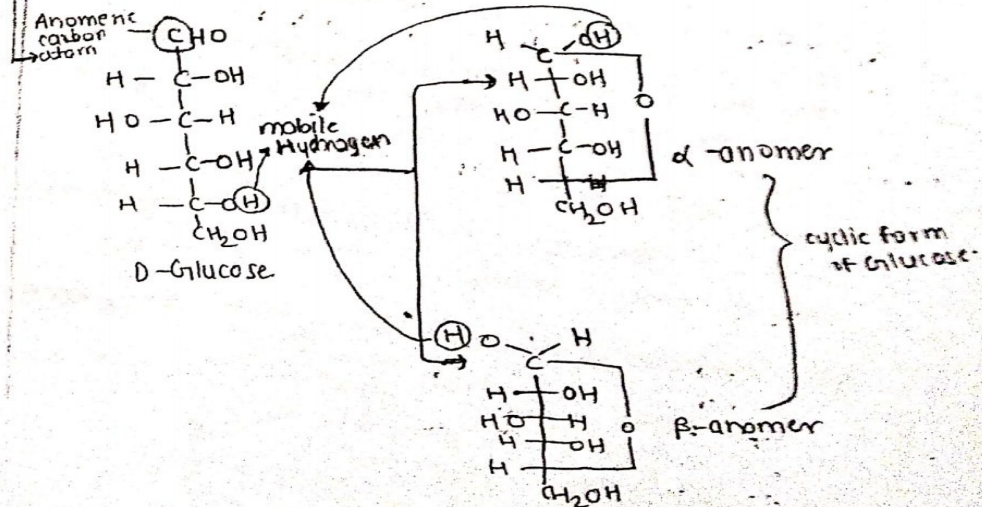 Anomeric
carbon
atom
CHO
H – C – OH
HO – C – H
H – C – OH
H – C – OH
CH₂OH
D-Glucose
mobile
Hydrogen
H C OH
H OH
HO – C – H
H – C – OH
H
CH₂OH
O
α-anomer
cyclic form
of Glucose.
H O C H
H OH
HO H
H OH
H
CH₂OH
O
β-anomer